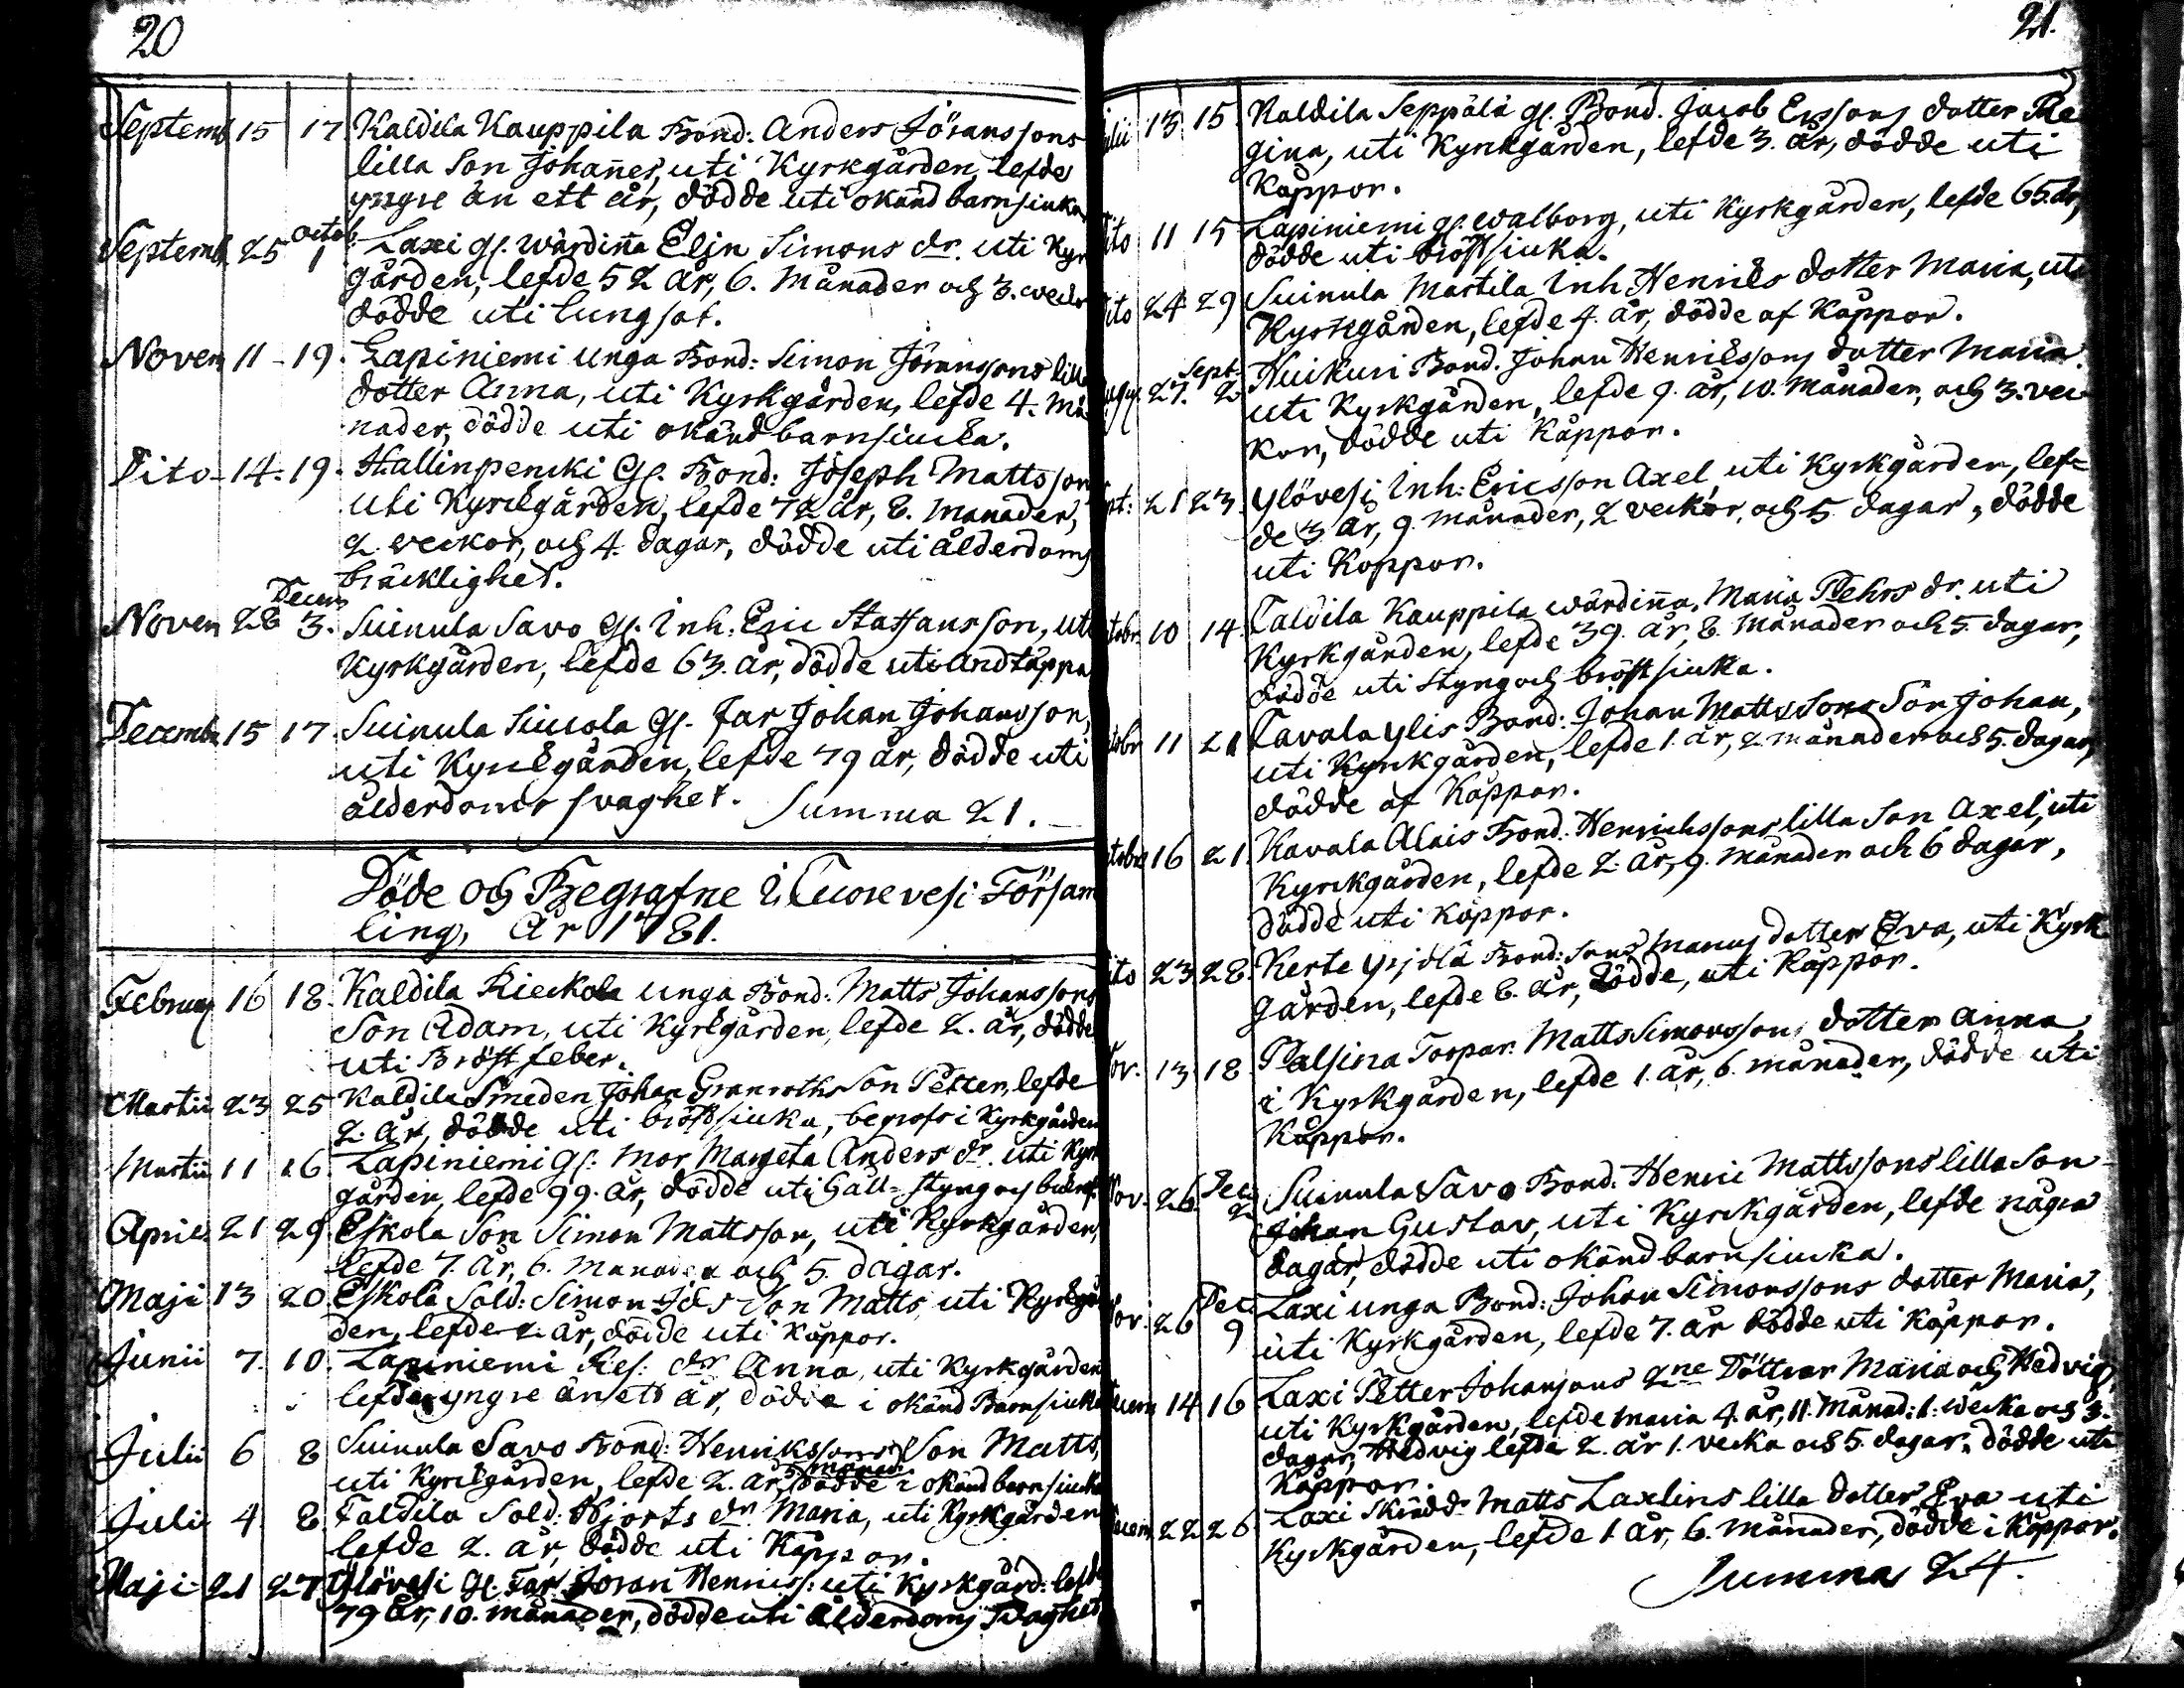 20
Septemb 15 17. Kaldila Kauppila Bond: Anders Jöranssons
lilla Son Johañes, uti Kyrkgården, lefde
yngre än ett år, dödde uti okänd barnsiuka
Septemb. 25 octob. 1 Laxi gl. wärdiña Elin Simons dr. uti Kyr
gården, lefde 52 år, 6. Månader och 3. weck
dödde uti Lungsot.
Novem 11 - 19. Lapiniemi unga Bond: Simon Jöranssons lilla
dotter Anna, uti Kyrkgården, lefde 4. Må
nader, dödde uti okändbarnsiucka.
Dito - 14 - 19. Hallinpencki Gl. Bond: Joseph Mattsson
uti Kyrckgården, lefde 72 år, 8. Månader,
2. veckor, och 4. dagar, dödde uti ålderdoms
bräcklighet.
Novem 28 Decem 3. Suinula Savo Gl. Inh. Eric Staffansson, uti
Kyrkgården, lefde 63. år, dödde uti andtäppa
Decembr 15 17. Suinula Siucola Gl. far Johan Johansson,
uti Kyrckgården, lefde 79 år, dödde uti
ålderdoms svaghet. Summa 21.
Döde och Begrafne i Cuorevesi Försam
ling, År 1781.
Februay 16 18. Kaldila Rieckola unga Bond: Matts Johanssons
Son Adam, uti Kyrkgården, lefde 2. år, dödde
uti Bröst feber.
Martii 23 25 Kaldila Smeden Johan Granroths Son Petter, lefde
2. år, dödde uti bröstsiuka, begrofs i Kyrkgården
Martii 11 16. Lapiniemi gl: Mor Margeta Anders dr. uti Kyrk
gården, lefde 99. år, dödde uti Håll= styng och
April 21 29. Eskola Son Simon Mattsson, uti Kyrkgården,
lefde 7. år, 6. Månader och 5. dagar.
Maji 13 20 Eskola Sold: Simon Son Matts uti Kyrkgår
den, lefde 2. år, dödde uti Koppor.
Junii 7. 10. Lapiniemi dr Anna, uti Kyrkgården
lefde yngre än ett år, dödde i okänd Barnsiuka
Julii 6 8 Suinula Savo Bond: Henrikssons Son Matts,
uti Kyrckgården, lefde 2. år, 5 månad dödde i okänd barnsiuka
Julii 4 8. Taldila Sold: Hjorts dr. Maria, uti Kyrkgården
lefde 2. år, dödde uti Koppor.
Maji 21 27 Ylövesi Gl. Far Jöran Henrics: uti Kyrkgård: lefde
79 år, 10. månader, dödde uti Ålderdoms Svaghet
21.
ulii 13 15. Kaldila Seppälä gl. Bond. Jacob Erssons dotter Re
gina, uti Kyrkgården, lefde 3. år, dödde uti
Koppor.
ito 11 15 Lapiniemi gl. Walborg, uti Kyrkgården, lefde 65. år,
dödde uti bröstsiuka.
ito 24 29 Suinula Martila Inh Henrics dotter Maria, uti
Kyrkgården, lefde 4. år, dödde af Koppor.
ug. 27. Sept. 2 Huikuri Bond. Johan Henricssons dotter Maria
uti Kyrkgården, lefde 9. år, 10. Månader, och 3. vec
kor, dödde uti Koppor.
pt: 21 23. Ylövesi Inh: Ericsson Axel, uti Kyrkgården, lef=
de 3. år, 9. månader, 2 veckor, och 5. dagar, dödde
uti Koppor.
tobr. 10 14. Taldila Kauppila wärdiña, Maria Pehrs dr. uti
Kyrkgården, lefde 39. år, 8. Månader och 5. dagar,
dödde uti styng och bröstsiuka.
tobr 11 21 Tavala Ylis Bond: Johan Mattssons Son Johan,
uti Kyrkgården, lefde 1. år, 2. månader och 5. dagar,
dödde af Koppor.
tobr 16 21. Kavala Alais Bond. Henrichssons lilla Son Axel, uti
Kyrckgården, lefde 2. år, 9. månader och 6 dagar,
dödde uti Koppor.
ito 23 28. Kerte Yrjölä Bond: Sons Manus dotter Eva, uti Kyrk
gården, lefde 8. år, dödde, uti Koppor.
ov. 13 18 Palsina Torpar. Matts Simonssons dotter Anna
i Kyrkgården, lefde 1. år, 6. månader, dödde uti
Koppor.
ov. 26. Dec. 2 Suinula Savo Bond. Henric Mattssons lilla Son
Johan Gustav, uti Kyrckgården, lefde några
dagar, dödde uti okänd barnsiucka.
ov. 26 Dec. 9 Laxi unga Bond: Johan Simonssons dotter Maria,
uti Kyrkgården, lefde 7. år dödde uti Koppor.
cem 14 16 Laxi Petter Johansons 2ne Döttrar Maria och Hedvig,
uti Kyrkgården, lefde Maria 4. år, 11. Månad: 1. wecka och 3.
dagar, Hedvig lefde 2. år 1. vecka och 5. dagar, dödde uti
Koppor.
cem 22 26 Laxi Skrädd. Matts Laxlins lilla dotter Eva uti
Kyrkgården, lefde 1 år, 6. Månader, dödde i Koppor.
Summa 24.